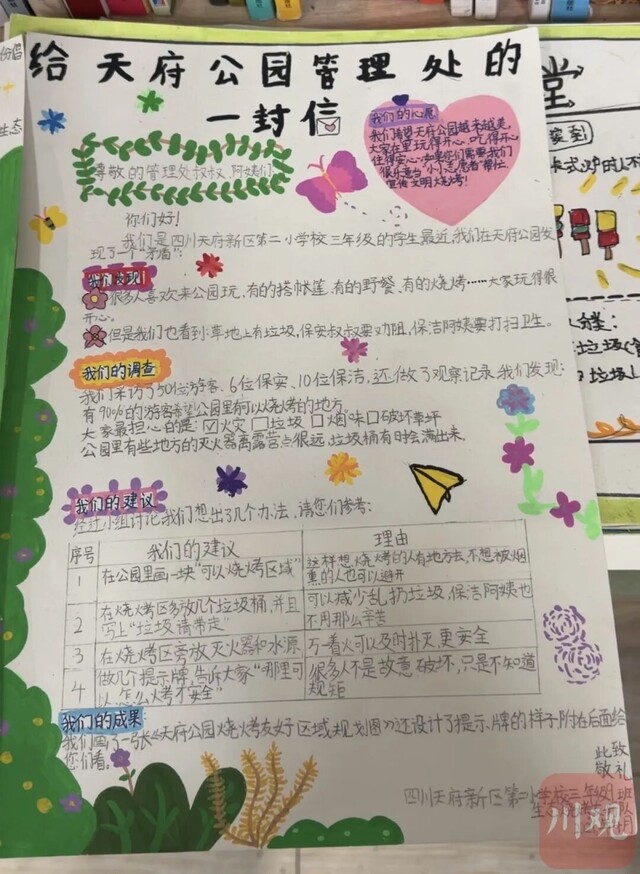 给天府公园管理处的
一封信
我们的心愿
我们希望天府公园越来越美,
大家在里玩得开心、吃得开心
住得安心!如果你们需要我们
很乐意当“小小志愿者”帮忙
宣传文明烧烤!
尊敬的管理处叔叔、阿姨们:
你们好!
我们是四川天府新区第二小学校三年级的学生最近,我们在天府公园发
现了一个“矛盾”:
我们发现
很多人喜欢来公园玩、有的搭帐篷、有的野餐、有的烧烤……大家玩得很
开心。
但是我们也看到:草地上有垃圾,保安叔叔要劝阻,保洁阿姨要打扫卫生。
我们的调查
我们采访了50位游客、6位保安、10位保洁,还做了观察记录,我们发现:
有90%的游客希望公园里有可以烧烤的地方
大家最担心的是:☑火灾 □垃圾 □烟味□破坏草坪
公园里有些地方的灭火器离露营点很远,垃圾桶有时会满出来
我们的建议
经过小组讨论,我们想出了几个办法,请您们参考:
序号 我们的建议 理由
1 在公园里画一块“可以烧烤区域” 这样想烧烤的人有地方去,不想被烟
熏的人也可以避开
2 在烧烤区多放几个垃圾桶,并且
写上“垃圾请带走” 可以减少乱扔垃圾,保洁阿姨也
不用那么辛苦
3 在烧烤区旁放灭火器和水源 万一着火可以及时扑灭,更安全
4 做几个提示牌,告诉大家“哪里可
以、怎么烤才安全” 很多人不是故意破坏,只是不知道
规矩
我们的成果
我们画了一张《天府公园烧烤友好区域规划图》还设计了提示牌的样子,附在后面给
您们看。
此致
敬礼
四川天府新区第二小学校三年级
川观
份倡
生态
堂
卡式炉的人不
垃圾